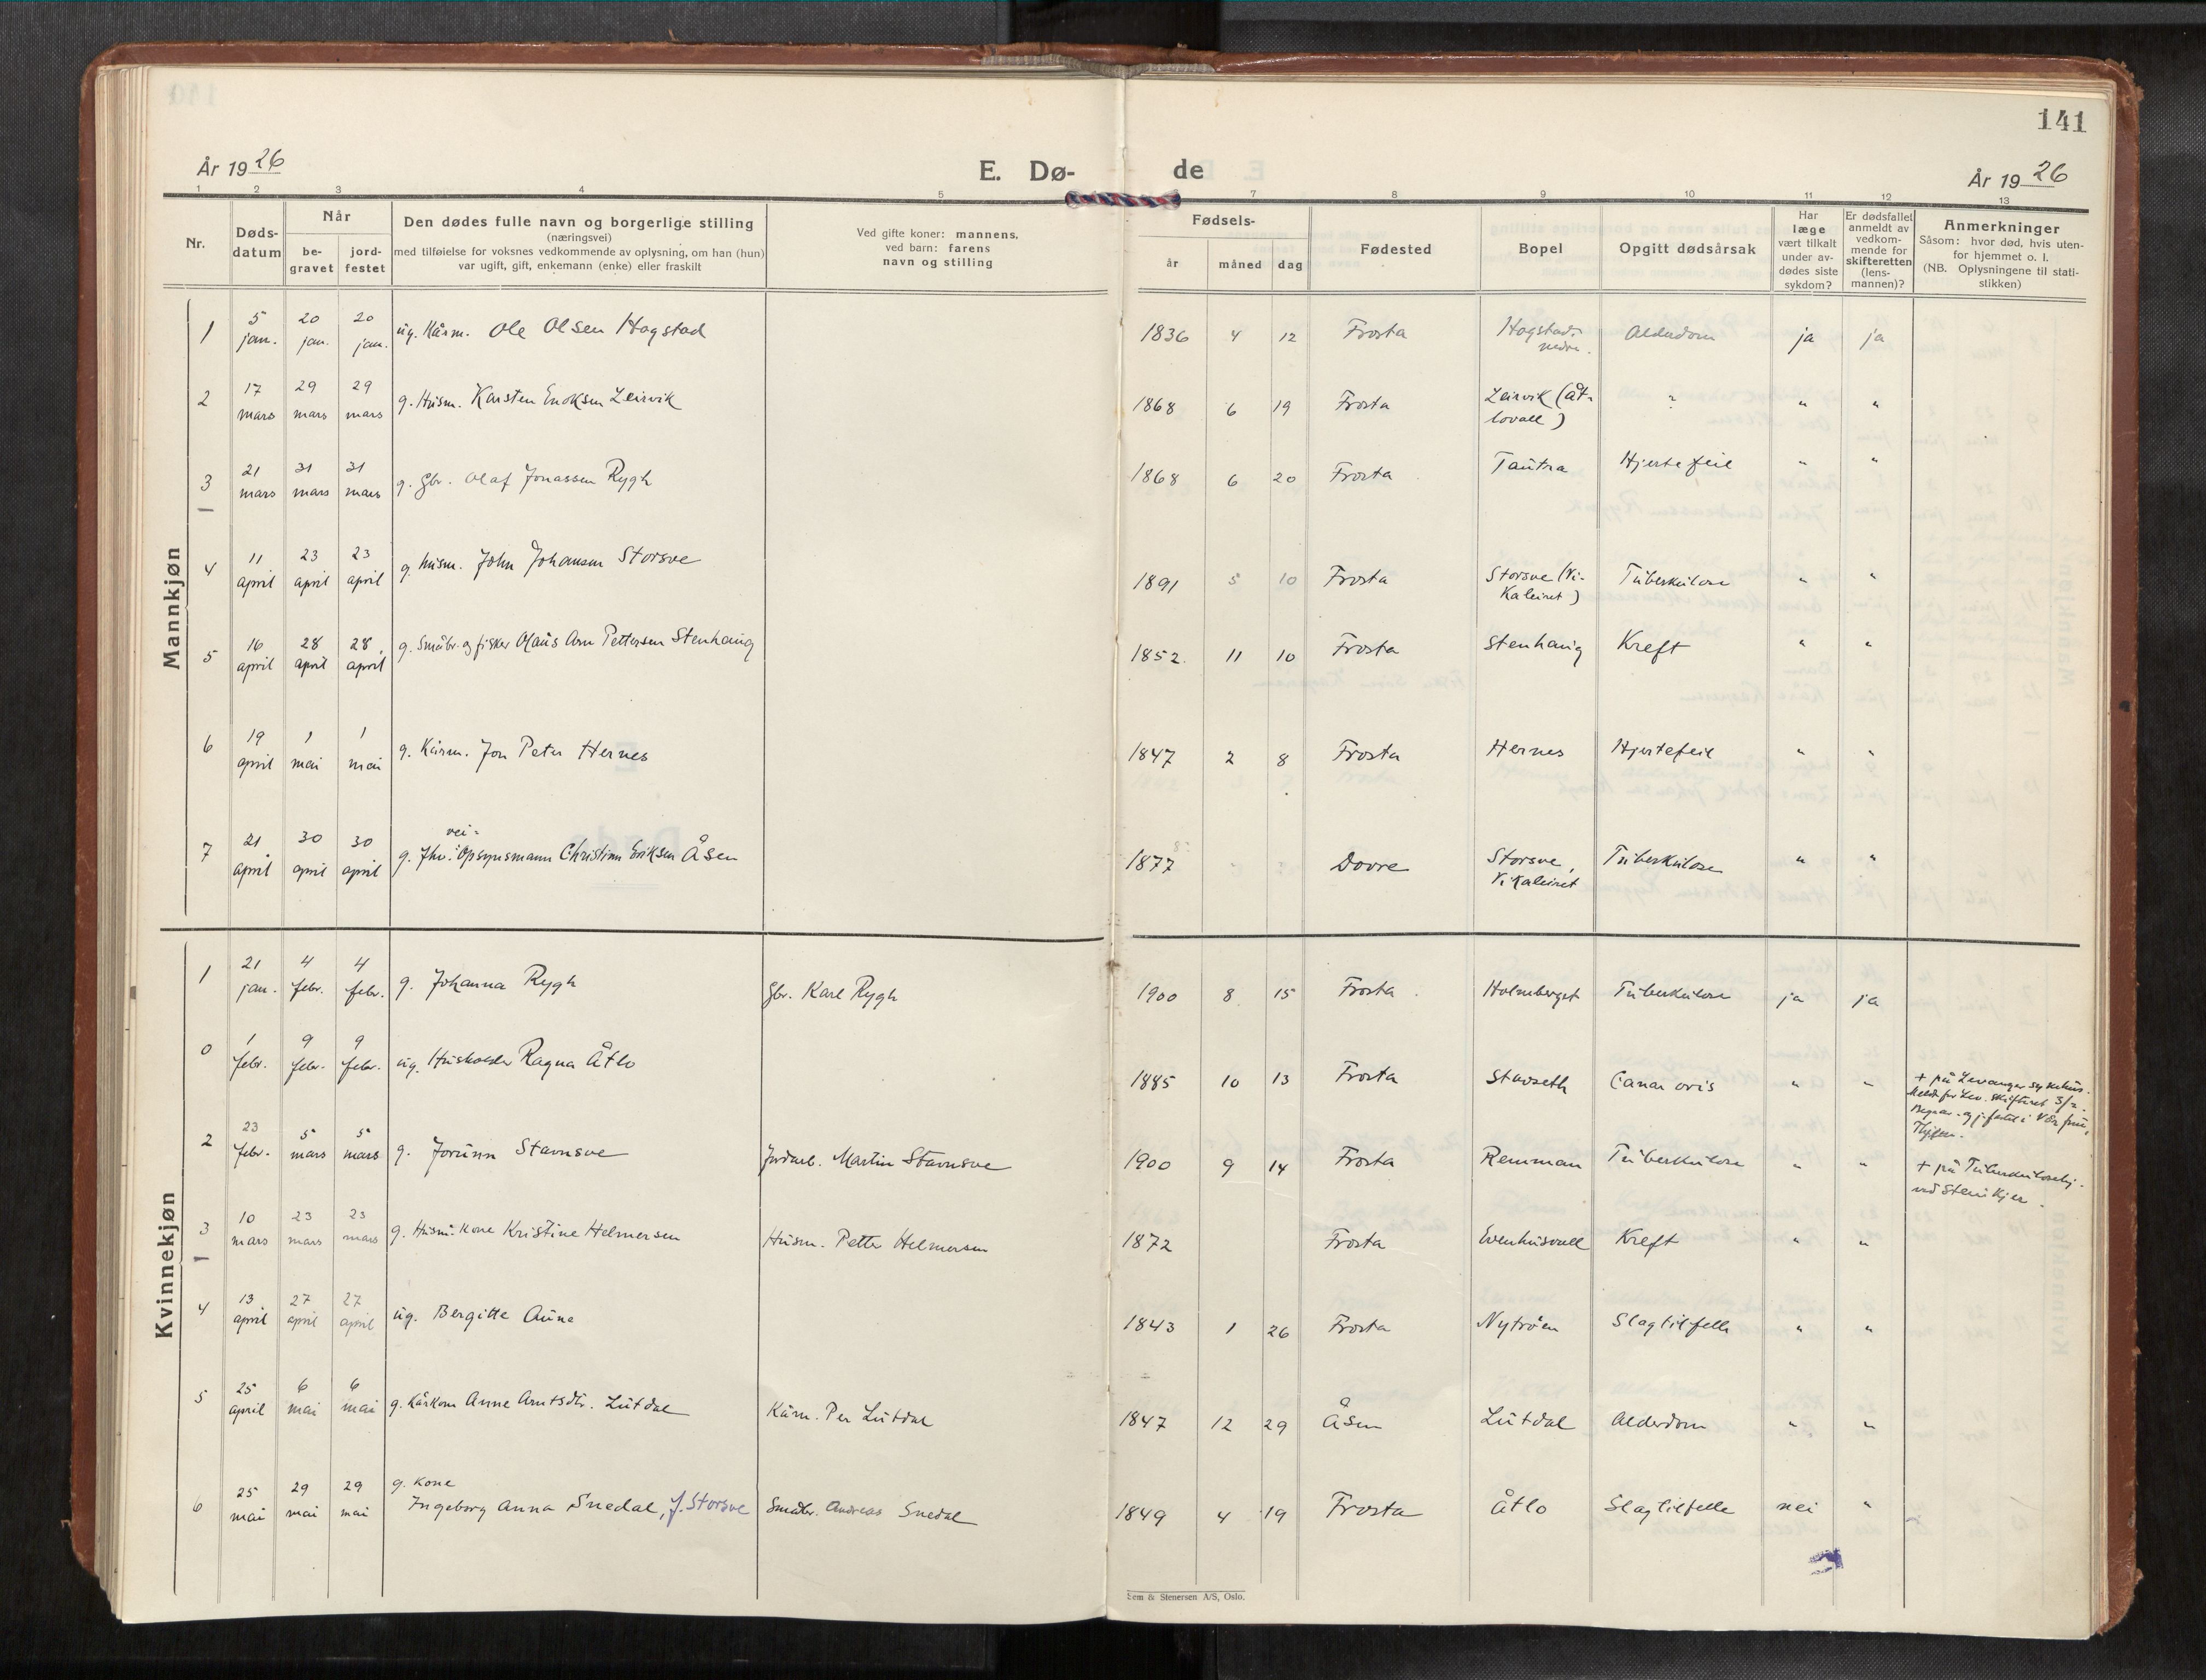 141
År 1926
E. Dø-
de
År 1926
1 2 3 4 5 7 8 9 10 11 12 13
Nr.
Døds-
datum
Når
be-
gravet
jord-
festet
Den dødes fulle navn og borgerlige stilling
(næringsvei)
med tilføielse for voksnes vedkommende av oplysning, om han (hun)
var ugift, gift, enkemann (enke) eller fraskilt
Ved gifte koner: mannens,
ved barn: farens
navn og stilling
Fødsels-
år måned dag
Fødested
Bopel
Opgitt dødsårsak
Har
læge
vært tilkalt
under av-
dødes siste
sykdom?
Er dødsfallet
anmeldt av
vedkom-
mende for
skifteretten
(lens-
mannen)?
Anmerkninger
Såsom: hvor død, hvis uten-
for hjemmet o. l.
(NB. Oplysningene til stati-
stikken)
Mannkjøn
1 5 jan. 20 jan. 20 jan. ug. Kårm. Ole Olsen Hogstad 1836 4 12 Frosta Hogstad nedre. Alderdom ja ja
2 17 mars 29 mars 29 mars g. Husm. Karsten Enoksen Leirvik 1868 6 19 Frosta Leirvik (Åt-
lovall) ? " "
3 21 mars 31 mars 31 mars g. Gbr. Olaf Jonassen Rygh 1868 6 20 Frosta Tautra Hjertefeil " "
4 11 april 23 april 23 april g. husm. John Johansen Storsve 1891 5 10 Frosta Storsve (Vi-
kaleiret) Tuberkulose " "
5 16 april 28 april 28 april g. Småbr. og fisker Olaus Arn Pettersen Stenhaug 1852. 11 10 Frosta Stenhaug Kreft " "
6 19 april 1 mai 1 mai g. Kårm. Jon Peter Hernes 1847 2 8 Frosta Hernes Hjertefeil " "
vei-
7 21 april 30 april 30 april g. Jhv. Opsynsmann Christian Eriksen Åsen 1877 Dovre Storsve,
Vikaleiret Tuberkulose " "
Kvinnekjøn
1 21 jan. 4 febr. 4 febr. g. Johanna Rygh Gbr. Karl Rygh 1900 8 15 Frosta Holmberget Tuberkulose ja ja
0 1 febr. 9 febr. 9 febr. ug. Husholder Ragna Åtlo 1885 10 13 Frosta Stavseth Cancer ovis " " + på Levanger sykehus.
Meldt for Lev. skifteret 3/2.
2 23 febr. 5 mars 5 mars g. Jorunn Stavnsve Jordarb. Martin Stavnsve 1900 9 14 Frosta Remman Tuberkulose " " + på Tuberkulosehj.
ved Steinkjer.
3 10 mars 23 mars 23 mars g. Husm. kone Kristine Helmersen Husm. Petter Helmersen 1872 Frosta Evenhusvall Kreft " "
4 13 april 27 april 27 april ug. Bergitte Aune 1843 1 26 Frosta Nytrøen Slagtilfelle " "
5 25 april 6 mai 6 mai g. Kårkone Anne Arntsdtr. Lutdal Kårm. Per Lutdal 1847 12 29 Åsen Lutdal Alderdom " "
g. kone
6 25 mai 29 mai 29 mai Ingeborg Anna Snedal, f. Storsve Småbr. Andreas Snedal 1849 4 19 Frosta Åtlo Slagtilfelle nei "
Sem & Stenersen A/S, Oslo.